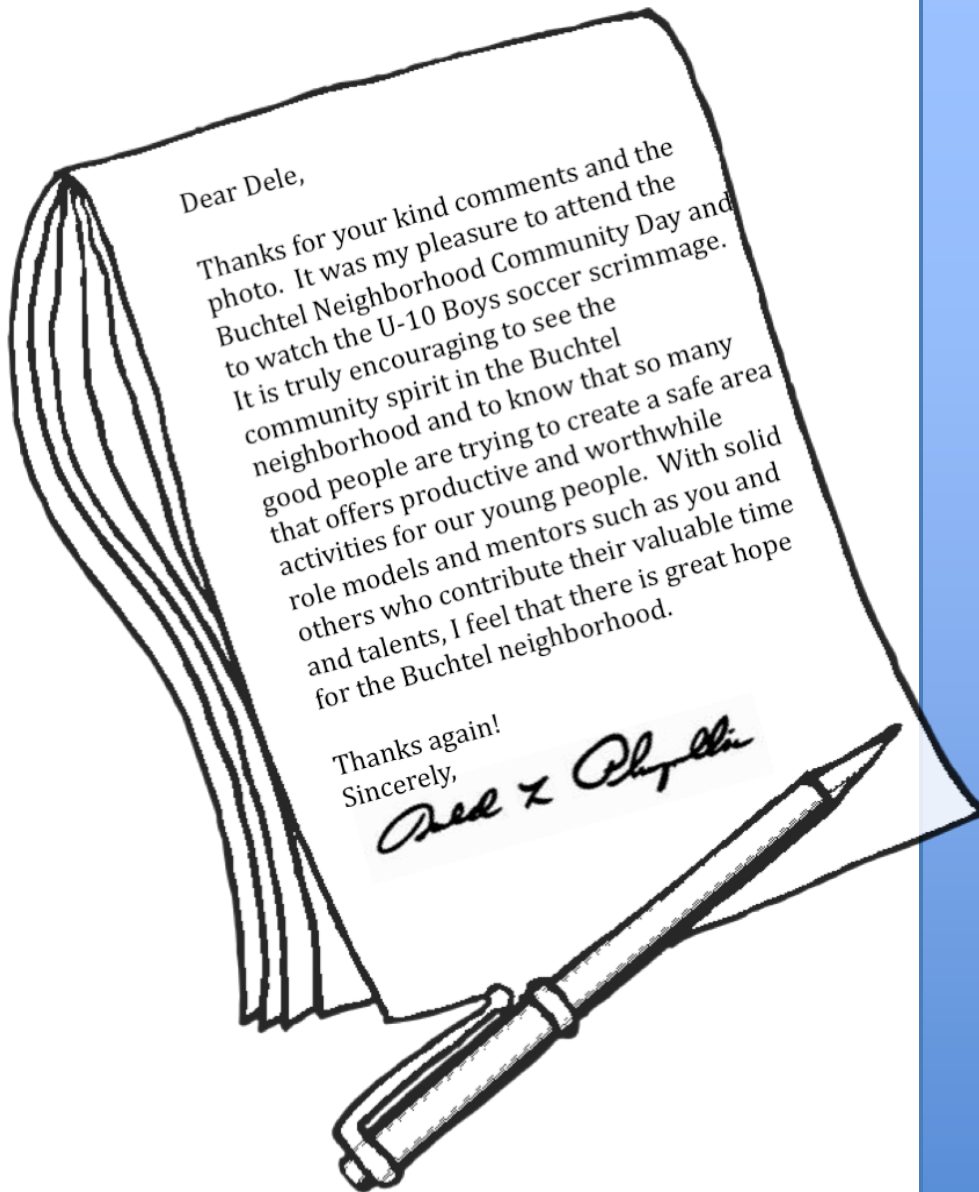 Dear Dele,
Thanks for your kind comments and the
photo.  It was my pleasure to attend the
Buchtel Neighborhood Community Day and
to watch the U-10 Boys soccer scrimmage.
It is truly encouraging to see the
community spirit in the Buchtel
neighborhood and to know that so many
good people are trying to create a safe area
that offers productive and worthwhile
activities for our young people.  With solid
role models and mentors such as you and
others who contribute their valuable time
and talents, I feel that there is great hope
for the Buchtel neighborhood.
Thanks again!
Sincerely,